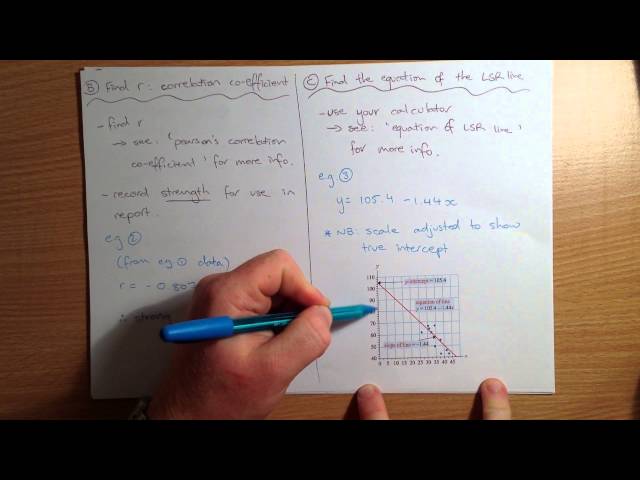 B Find r: correlation co-efficient
- find r
→ see: 'pearson's correlation
co-efficient' for more info.
- record strength for use in
report.
eg ②
(from eg ① data)
r = -0.807
∴ strong
C Find the equation of the LSR line
- use your calculator
→ see: 'equation of LSR line'
for more info.
eg ③
y = 105.4 - 1.44x
* NB: scale adjusted to show
true intercept
y
110
100
90
80
70
60
50
40
0 5 10 15 20 25 30 35 40 45
y-intercept = 105.4
equation of line
y = 105.4 - 1.44x
slope of line = -1.44